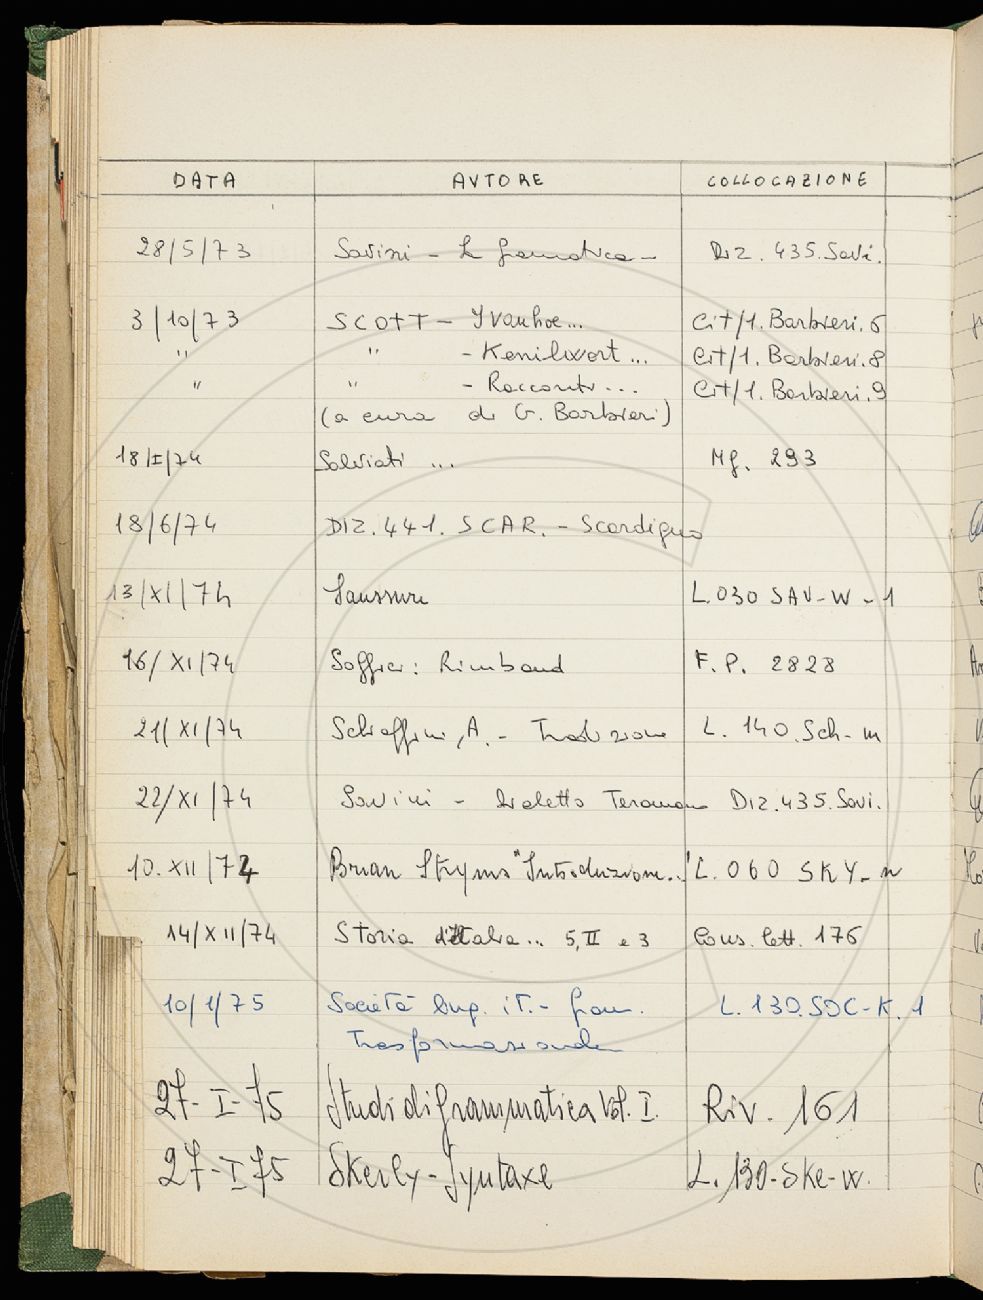 DATA AUTORE COLLOCAZIONE
28/5/73 Savini - La grammatica - Diz. 435. Savi.
3/10/73 SCOTT - Ivanhoe... Cit/1. Barbieri. 6
" " - Kenilwort... Cit/1. Barbieri. 8
" " - Racconti... Cit/1. Barbieri. 9
(a cura di G. Barbieri)
18/I/74 Salviati ... Mg. 293
18/6/74 DIZ. 441. SCAR. - Scardigno
13/XI/74 Saussure L. 030 SAU-W-1
16/XI/74 Soffici: Rimbaud F.P. 2828
21/XI/74 Schiaffini, A. - Traduzione L. 140. Sch-m
22/XI/74 Savini - Dialetto Teramano Diz. 435. Savi.
10. XII/74 Brian "Introduzione.." L. 060 SKY-n
14/XII/74 Storia d'Italia... 5, II e 3 Cons. lett. 176
10/1/75 Società Ling. it. - Gram. L. 130. SOC-K. 1
Trasformazionale
27-I-75 Studi di grammatica Vol. I. Riv. 161
27-I-75 Skerly - Syntaxe L. 130-Ske-w.